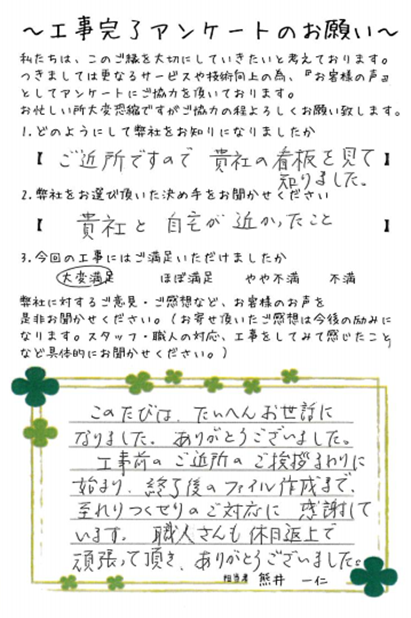 ～工事完了アンケートのお願い～
私たちは、このご縁を大切にしていきたいと考えております。
つきましては更なるサービスや技術向上の為、『お客様の声』
としてアンケートにご協力を頂いております。
お忙しい所大変恐縮ですがご協力の程よろしくお願い致します。
1.どのようにして弊社をお知りになりましたか
【 ご近所ですので 貴社の看板を見て
知りました。 】
2.弊社をお選び頂いた決め手をお聞かせください
【 貴社と自宅が近かったこと 】
3.今回の工事にはご満足いただけましたか
大変満足 ほぼ満足 やや不満 不満
弊社に対するご意見・ご感想など、お客様のお声を
是非お聞かせください。(お寄せ頂いたご感想は今後の励みに
なります。スタッフ・職人の対応、工事をしてみて感じたこと
など具体的にお聞かせください。)
このたびは、たいへんお世話に
なりました。ありがとうございました。
工事前のご近所のご挨拶まわりに
始まり、終了後のファイル作成まで、
至れりつくせりのご対応に 感謝して
います。職人さんも休日返上で
頑張って頂き、ありがとうございました。
担当者 熊井 一仁